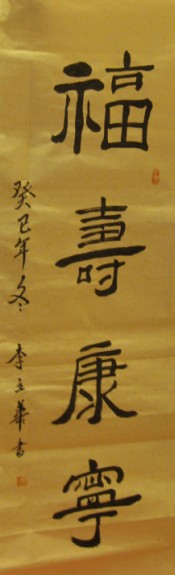 福壽康寧
癸巳年冬 李立華書